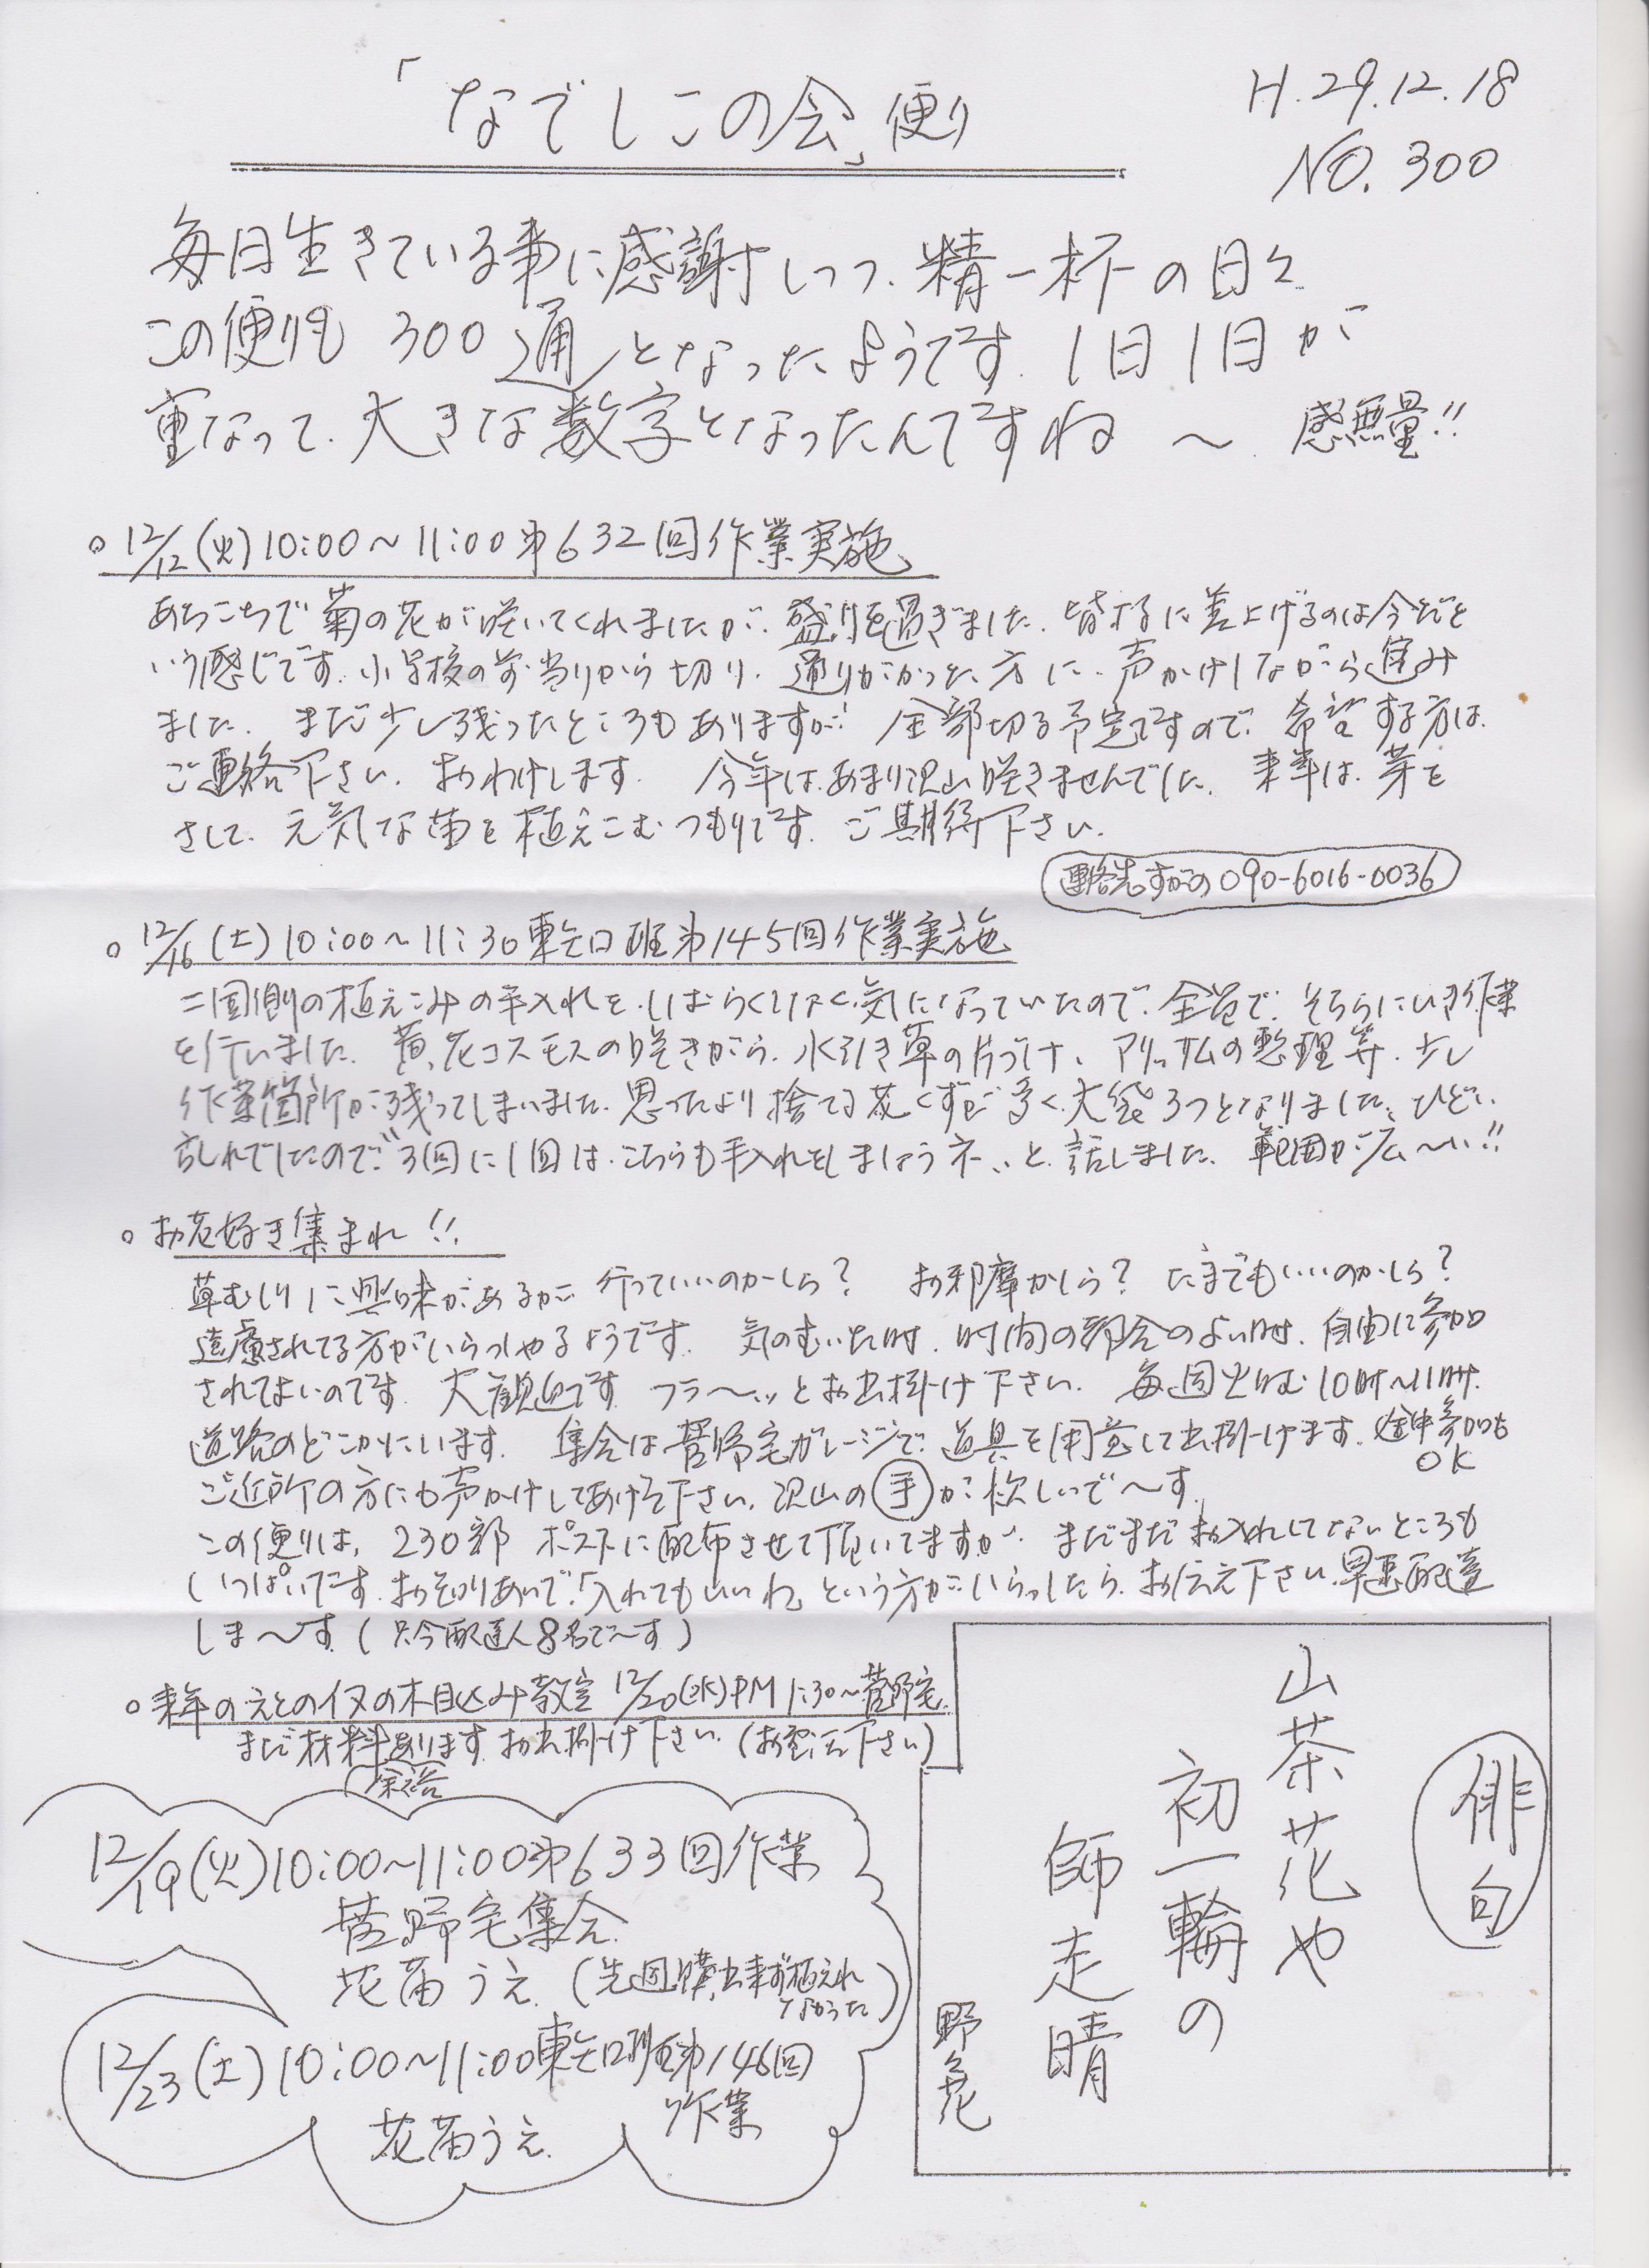 「なでしこの会」便り
H.29.12.18
NO.300
毎日生きている事に感謝しつつ、精一杯の日々
この便りも 300通となったようです。1日1日が
重なって、大きな数字となったんですね 〜 感無量!!
○12/12(火)10:00〜11:00第632回作業実施
あちこちで菊の花が咲いてくれましたが、盛りを過ぎました。皆様に差上げるのは今だと
いう感じです。小学校の前当りから切り、通りがかった方に、声かけしながら進み
ました。まだ少し残ったところもありますが、全部切る予定ですので、希望する方は、
ご連絡下さい。おわけします。 今年は、あまり沢山咲きませんでした。来年は、芽を
さして、元気な苗を植えこむつもりです。ご期待下さい。
連絡先すがの090-6016-0036
○12/16(土)10:00〜11:30東矢口班第145回作業実施
二国側の植えこみの手入れを、しばらくしなく、気になっていたので、全員で、そちらにいき作業
を行いました。黄花コスモスの咲きがら、水引き草の片づけ、アリッサムの整理等、少し
作業箇所が残ってしまいました。思ったより捨てる花くずが多く、大袋3つとなりました。ひどい
乱れでしたので、3回に1回は、こちらも手入れをしましょうネ、、と話しました。範囲が広〜い!!
○お花好き集まれ!!
草むしりに興味があるが 行っていいのかしら? お邪摩かしら? たまでもいいのかしら?
遠慮されてる方がいらっしゃるようです。 気のむいた時、時間の都合のよい時、自由に参加
されてよいのです。大歓迎です。フラ〜ッとお出掛け下さい。毎週火曜 10時〜11時。
道路のどこかにいます。 集合は菅野宅ガレージで、道具を用意して出掛けます。途中参加も
OK
ご近所の方にも声かけしてあげて下さい。沢山の手が欲しいで〜す。
この便りは、230部 ポストに配布させて頂いてますが、まだまだお入れしてないところも
いっぱいです。お知りあいで、「入れてもいいね」という方がいらっしたら、お伝え下さい。早速配達
しま〜す。(只今配達人8名で〜す)
○来年のえとのイヌの木目込み教室 12/20(水)PM1:30〜菅野宅
まだ材料余裕あります。お出掛け下さい。(お電話下さい)
12/19(火)10:00〜11:00第633回作業
菅野宅集合
花苗うえ (先週購出来ず植えれ
なかった)
12/23(土)10:00〜11:00東矢口班第146回
作業
花苗うえ
俳句
山茶花や
初一輪の
師走晴
野花